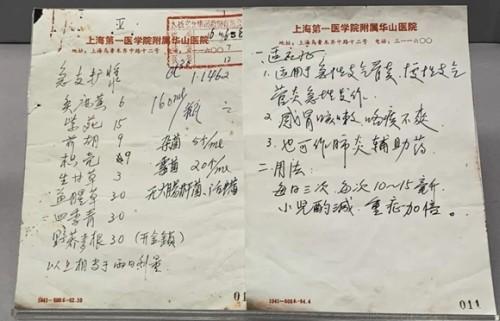 V
上海第一医学院附属华山医院
地址：上海乌鲁木齐中路十二号 电话：三一一六〇〇
急支
1.1462
炙麻黄 6
紫菀 15
前胡 9
枳壳 9
生甘草 3
鱼腥草 30
四季青 30
野荞麦根 30 (开金锁)
以上相当于两日剂量
160ml/瓶
杂菌 5个/ml
霉菌 20个/ml
无大肠杆菌、活螨
上海第一医学院附属华山医院
地址：上海乌鲁木齐中路十二号 电话：三一一六〇〇
一. 适应证
1. 适用于急性支气管炎，慢性支气
管炎急性发作.
2. 感冒咳嗽 咯痰不爽
3. 也可作肺炎辅助药
二. 用法:
每日三次 每次10～15毫升
小儿酌减. 重症加倍。
011